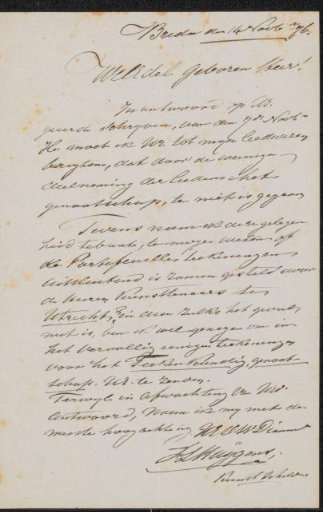 Breda den 14 Novb 76.
WelEdel Geboren Heer!
In antwoord op U
geerd schrijven, van den 9de Novb
Ho. moet ik UE tot mijn leedwezen
berigten, dat door de weinige
deelneming der Leden het
genootschap, te niet is gegaan
Tevens neem ik de gelegen
heid te baat, te mogen weten of
de Portefeuilles teekeningen
uitsluitend is zamen gesteld door
de Heeren Kunstenaars te
Utrecht, Een voor zulks het geval
niet is, ben ik wel genegen om in
het vervolg eenige teekeningen
voor het Teekenkundig genoot-
schap. UE. te zenden.
Terwijl in afwachting van Uw
Antwoord, Noem ik mij met de
meeste hoogachting UE D W Dienaar
Huijgens
Kunstschilder